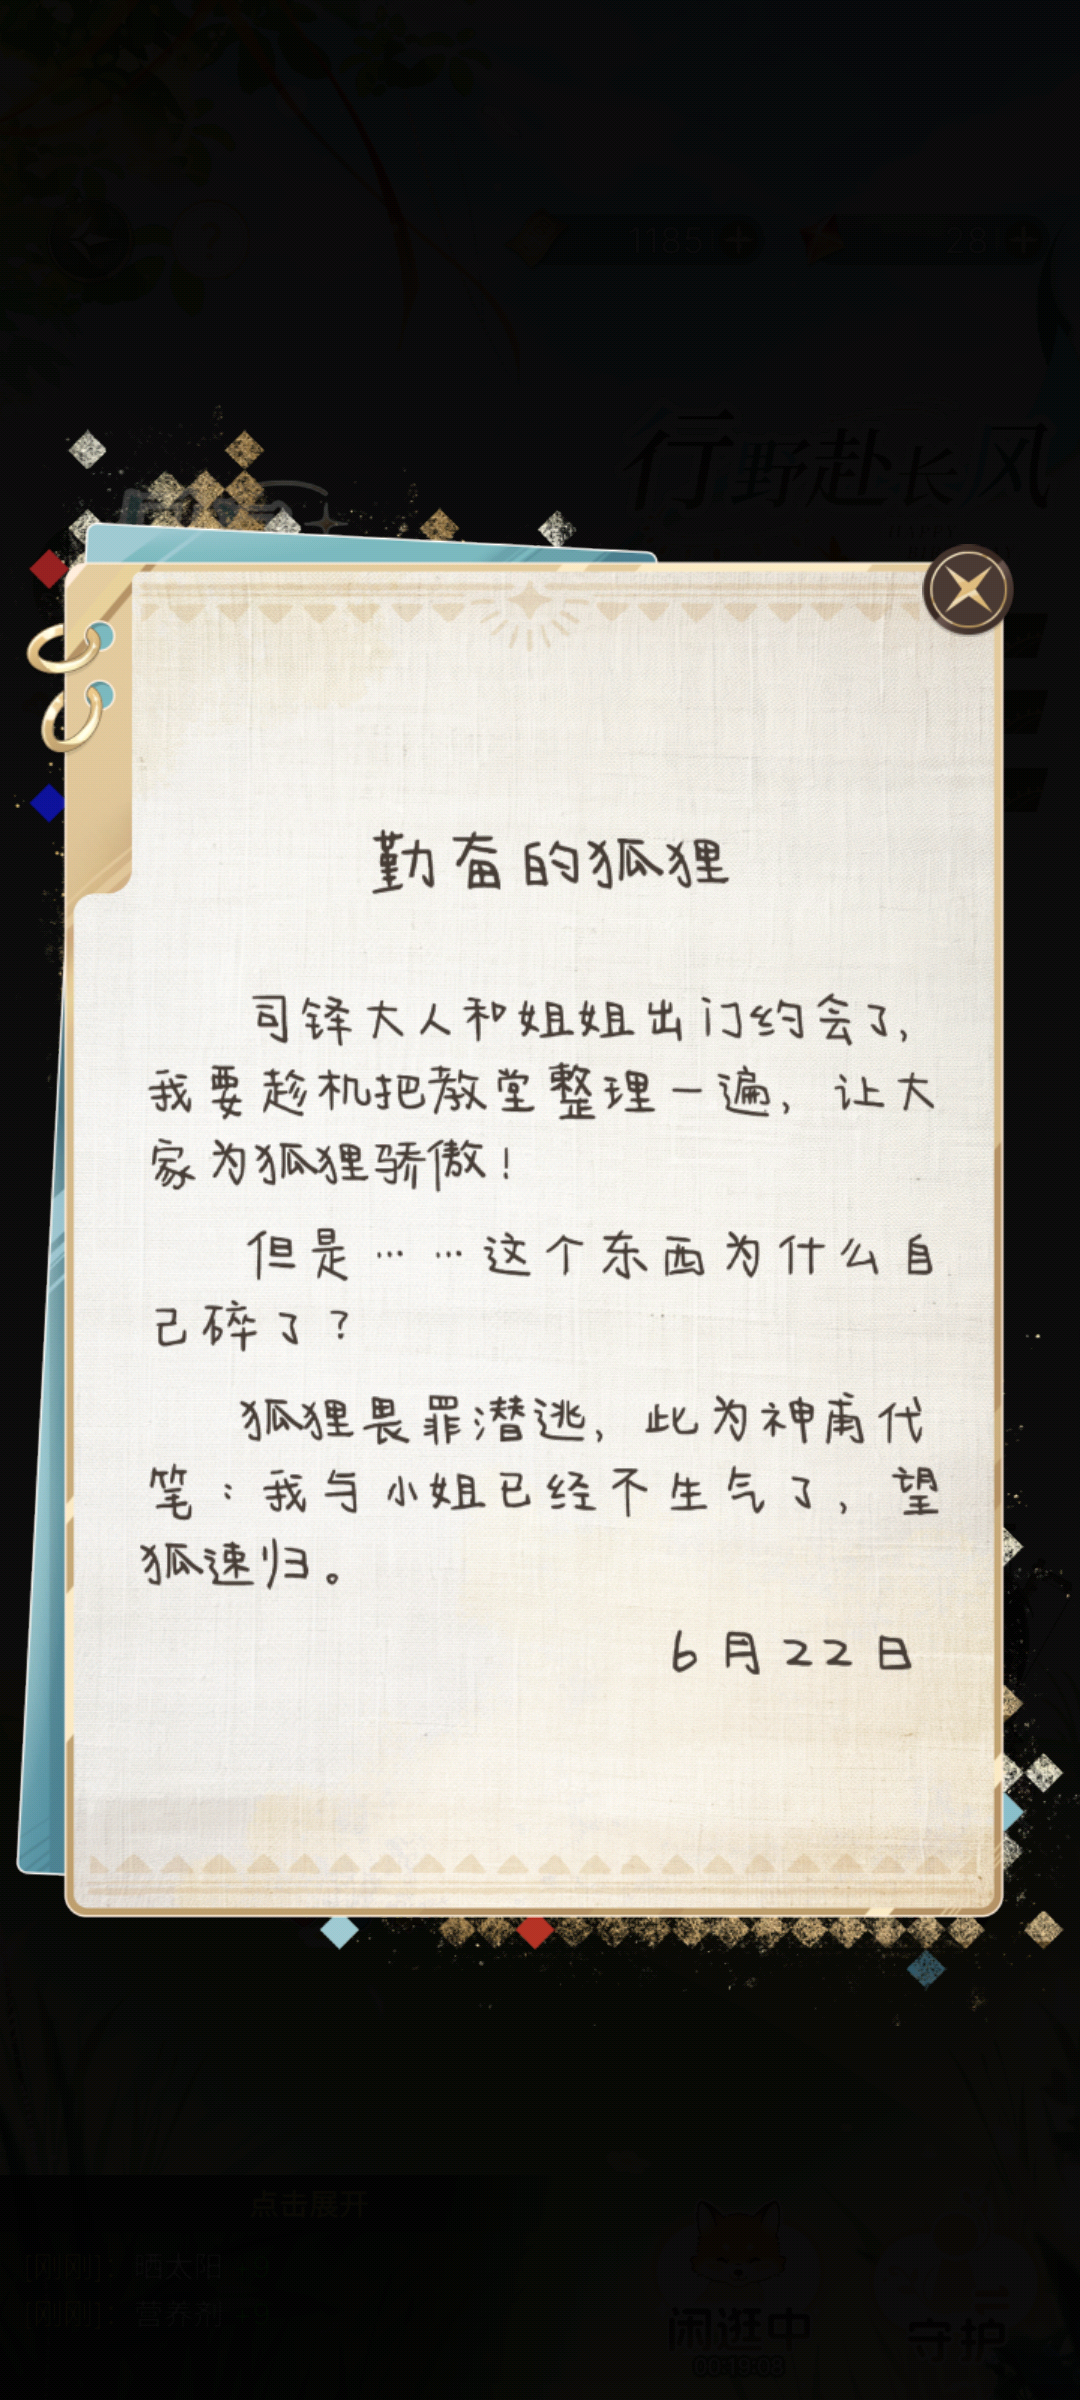 1185
28
行野赴长风
勤奋的狐狸
司铎大人和姐姐出门约会了，
我要趁机把教堂整理一遍，让大
家为狐狸骄傲！
但是……这个东西为什么自
己碎了？
狐狸畏罪潜逃，此为神甫代
笔：我与小姐已经不生气了，望
狐速归。
6月22日
点击展开
[刚刚]：晒太阳
[刚刚]：营养剂
闲逛中
守护
00:19:08